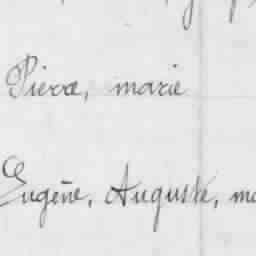 Pierre, marie
Eugène, Auguste,